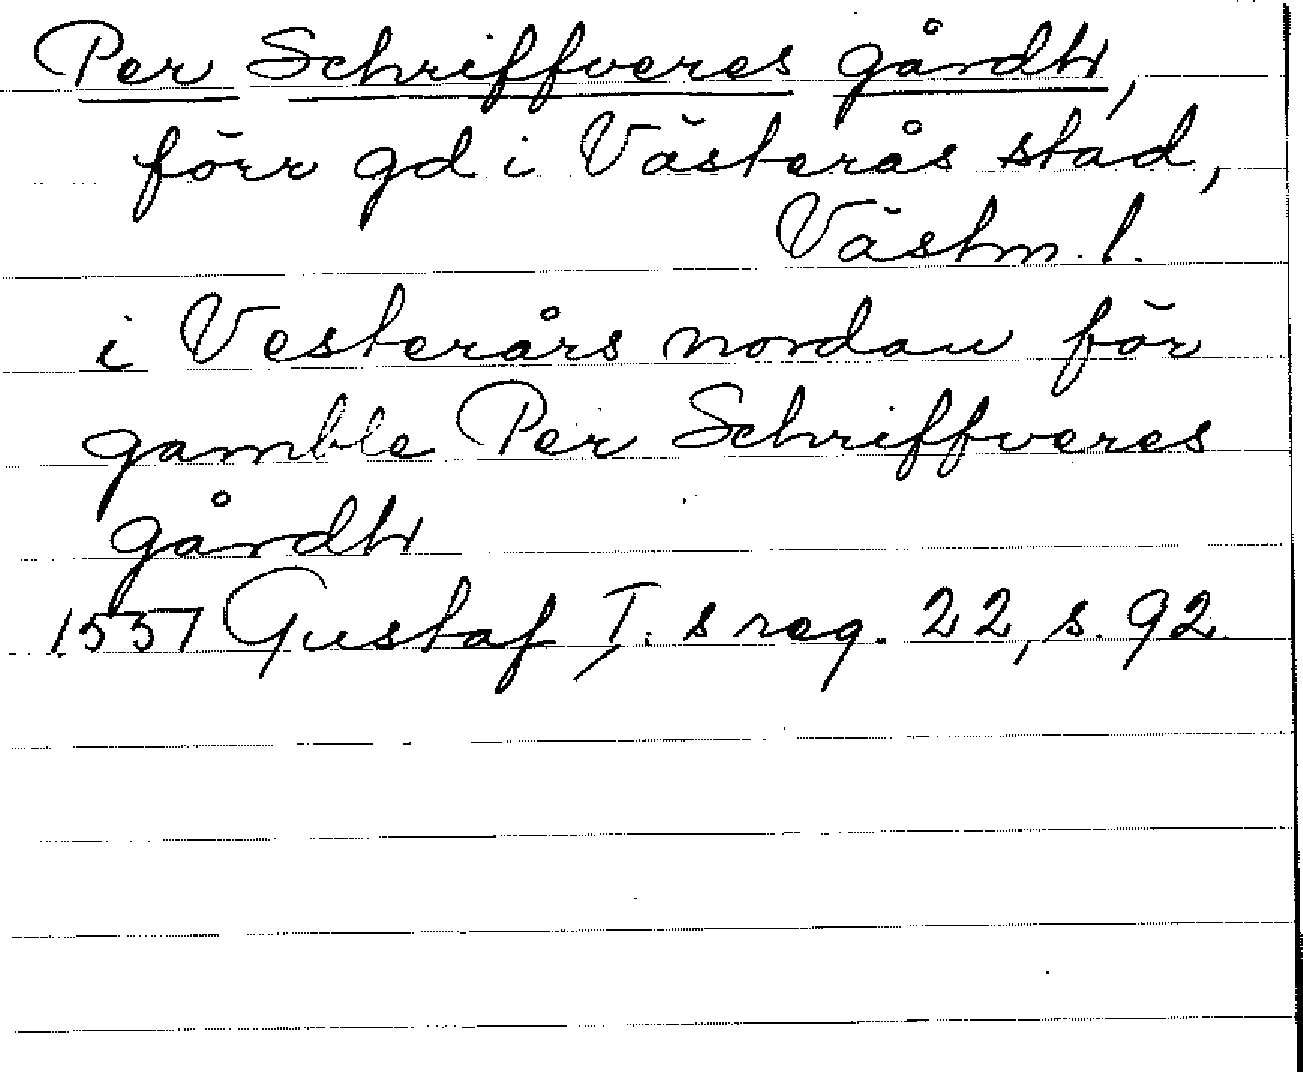 Per Schriffveres gårdh,
förr gd i Västerås stad,
Västm. l.
i Vesterårs nordan för
gamble Per Schriffveres
gårdh
1557 Gustaf I:s reg. 22, s. 92